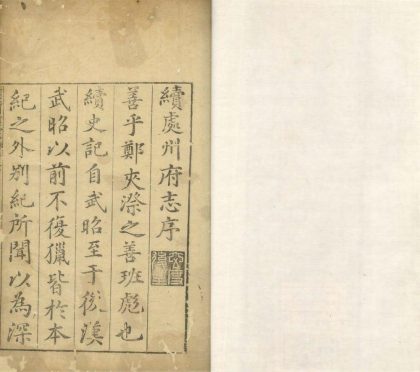 續處州府志序
善乎鄭夾漈之善班彪也
續史記自武昭至于後漢
武昭以前不復獵皆於本
紀之外别紀所聞以為深